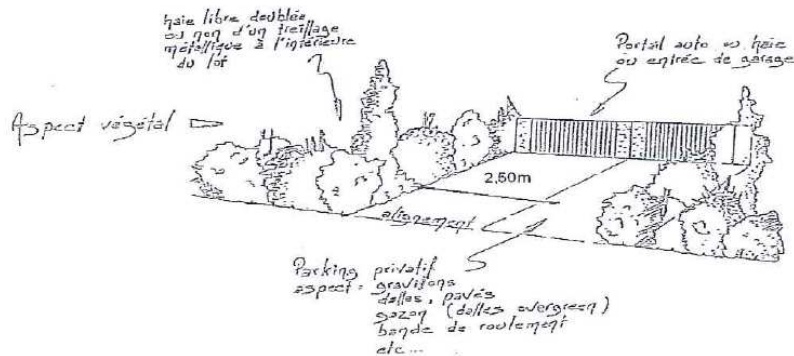 haie libre doublée
ou non d'un treillage
métallique à l'intérieure
du lot
Portail auto ou haie
ou entrée de garage
Aspect végétal
2,50m
alignement
Parking privatif
aspect: gravillons
dalles, pavés
gazon (dalles evergreen)
bande de roulement
etc...